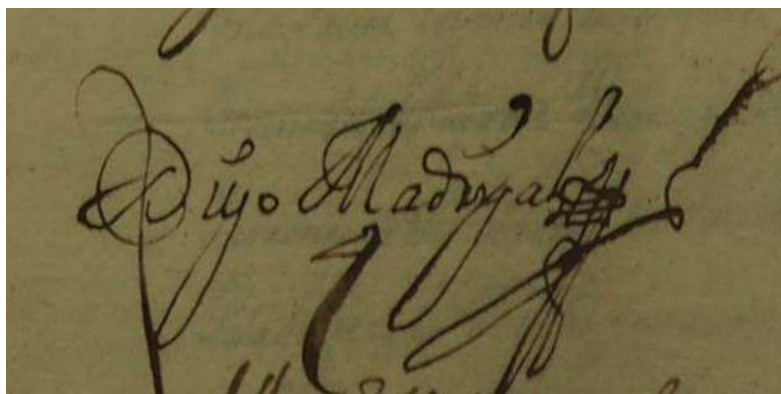 Diego Madrigal